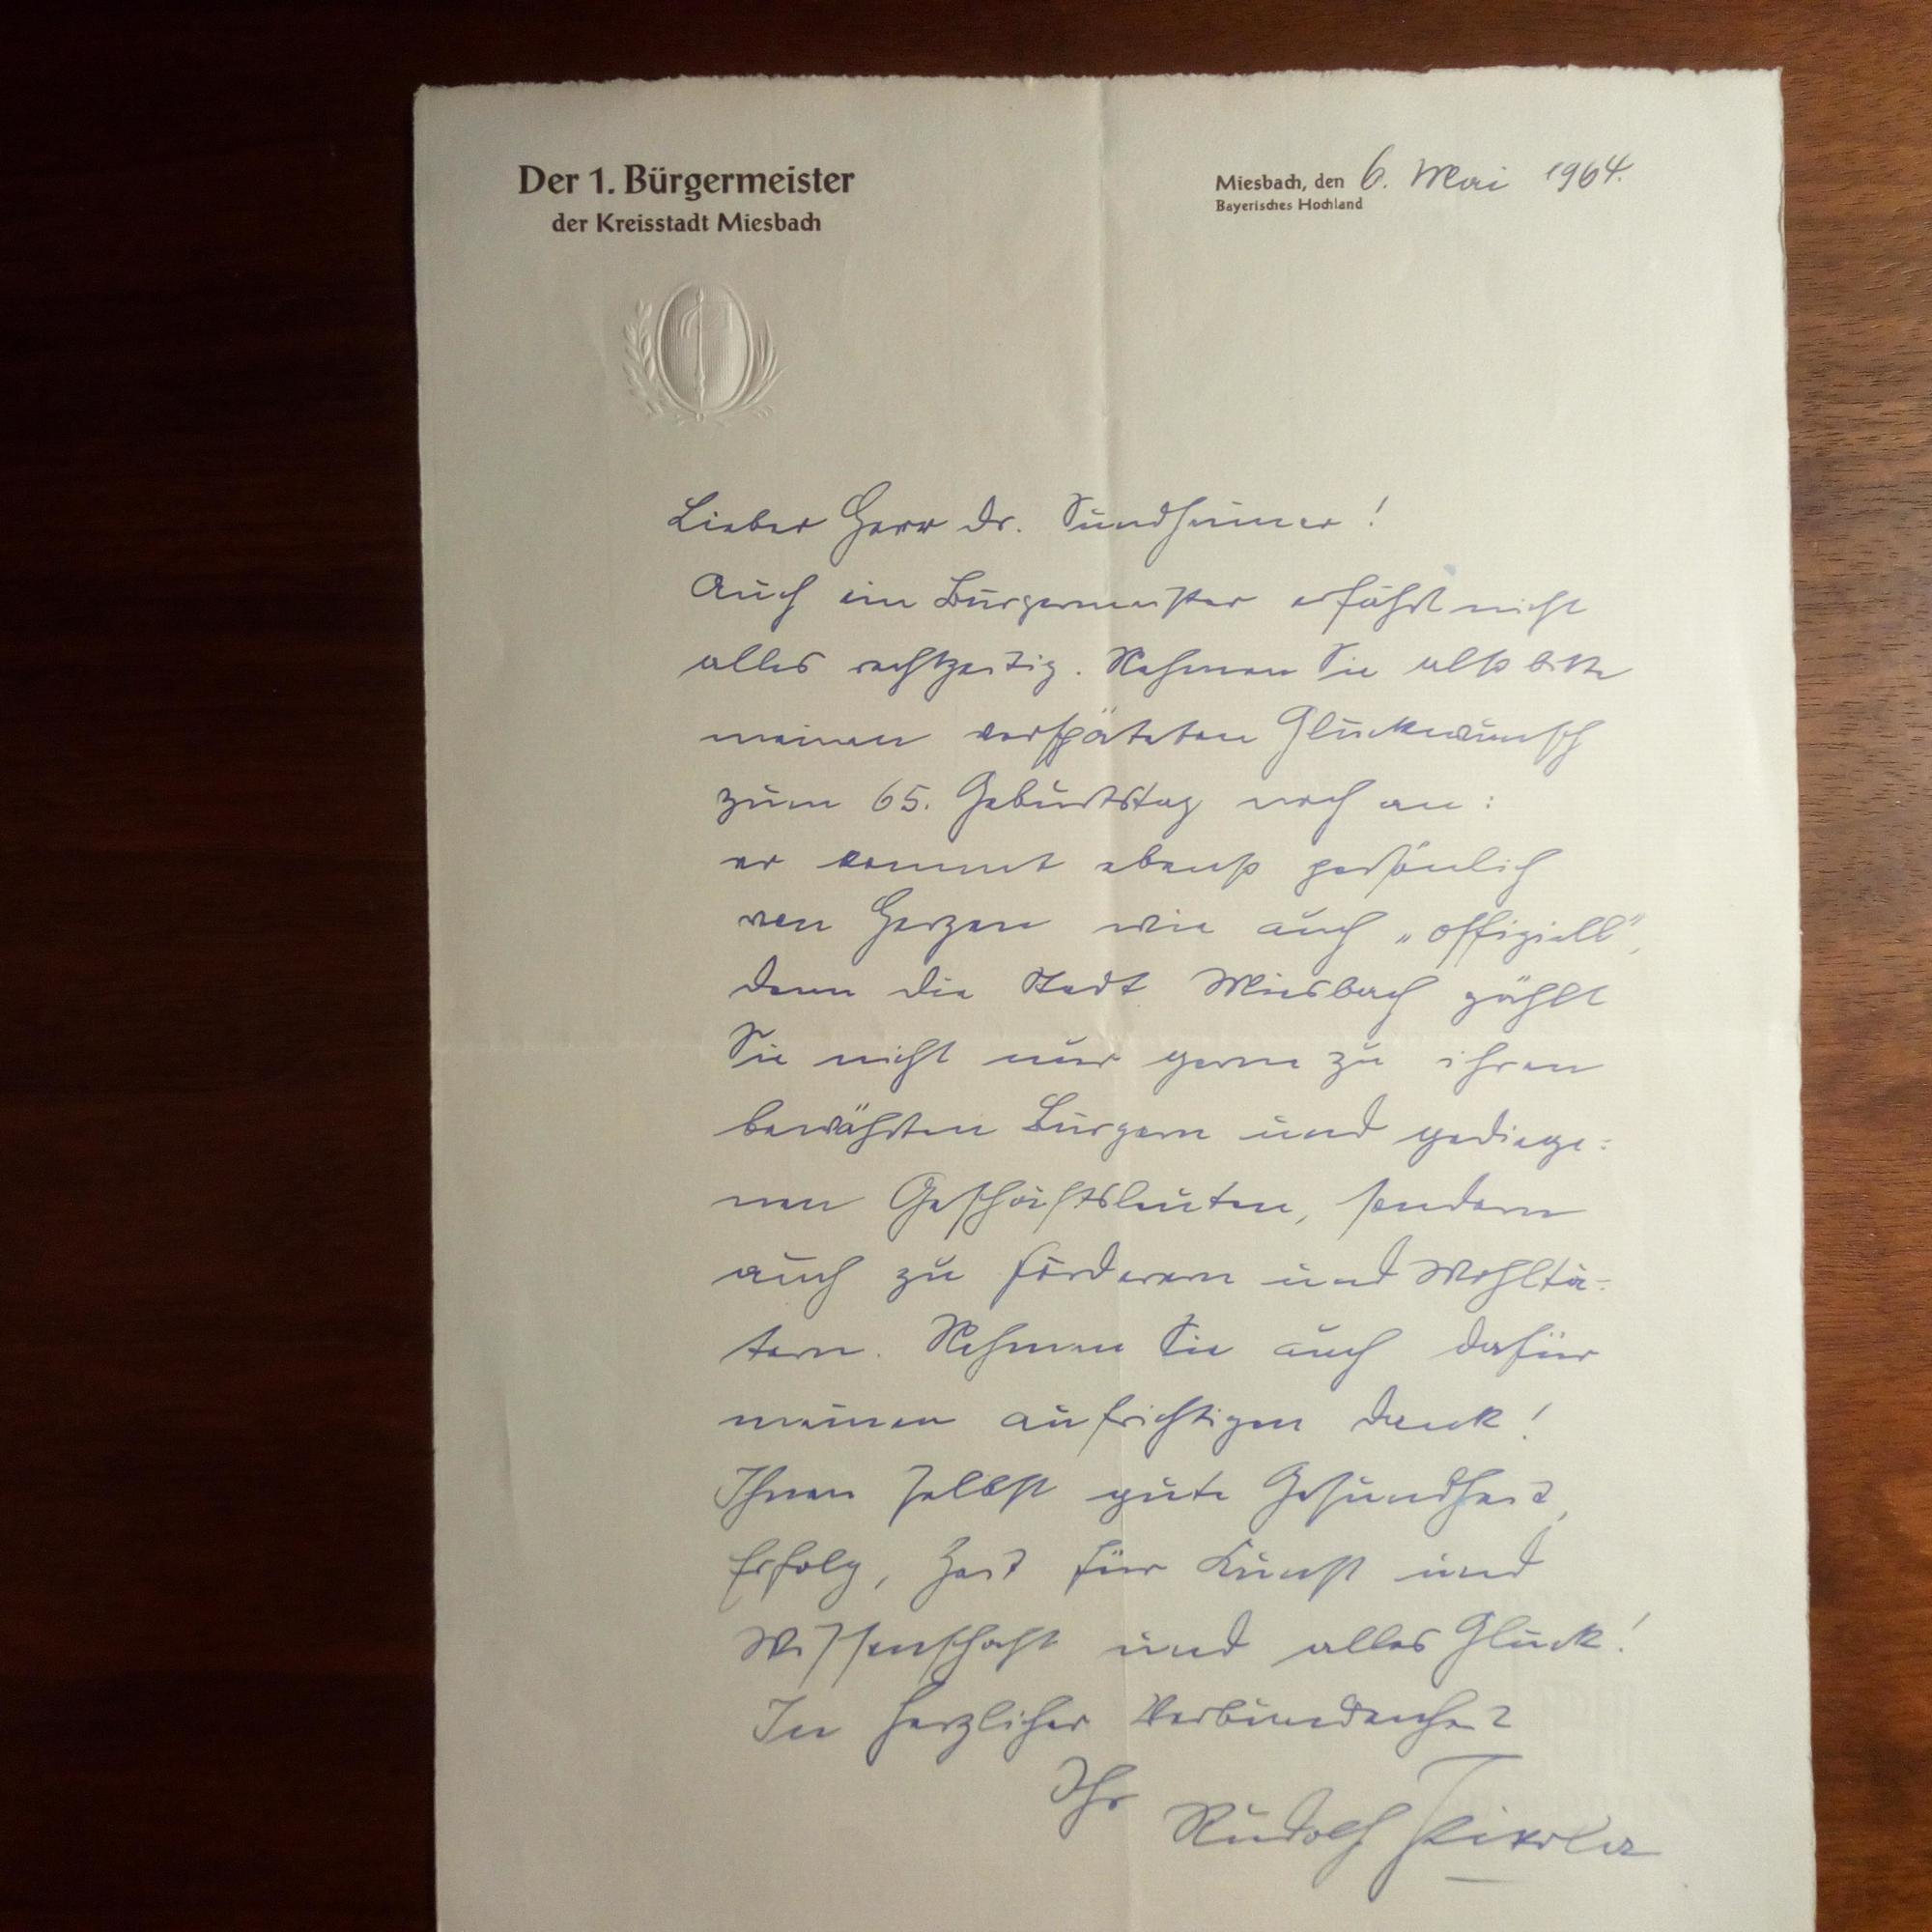 Der 1. Bürgermeister
der Kreisstadt Miesbach
Miesbach, den 6. Mai 1964.
Bayerisches Hochland
Lieber Herr Dr. Sundheimer!
Auch ein Bürgermeister erfährt nicht
alles rechtzeitig. Nehmen Sie also bitte
meinen verspäteten Glückwunsch
zum 65. Geburtstag noch an:
er kommt ebenso persönlich
von Herzen wie auch „offiziell",
denn die Stadt Miesbach zählt
Sie nicht nur gerne zu ihren
bewährten Bürgern und gediege=
nen Geschäftsleuten, sondern
auch zu Förderern und Wohltä=
tern. Nehmen Sie auch dafür
meinen aufrichtigen Dank!
Ihnen selbst gute Gesundheit,
Erfolg, Zeit für Kunst und
Wissenschaft und alles Glück!
In herzlicher Verbundenheit
Ihr
Rudolf